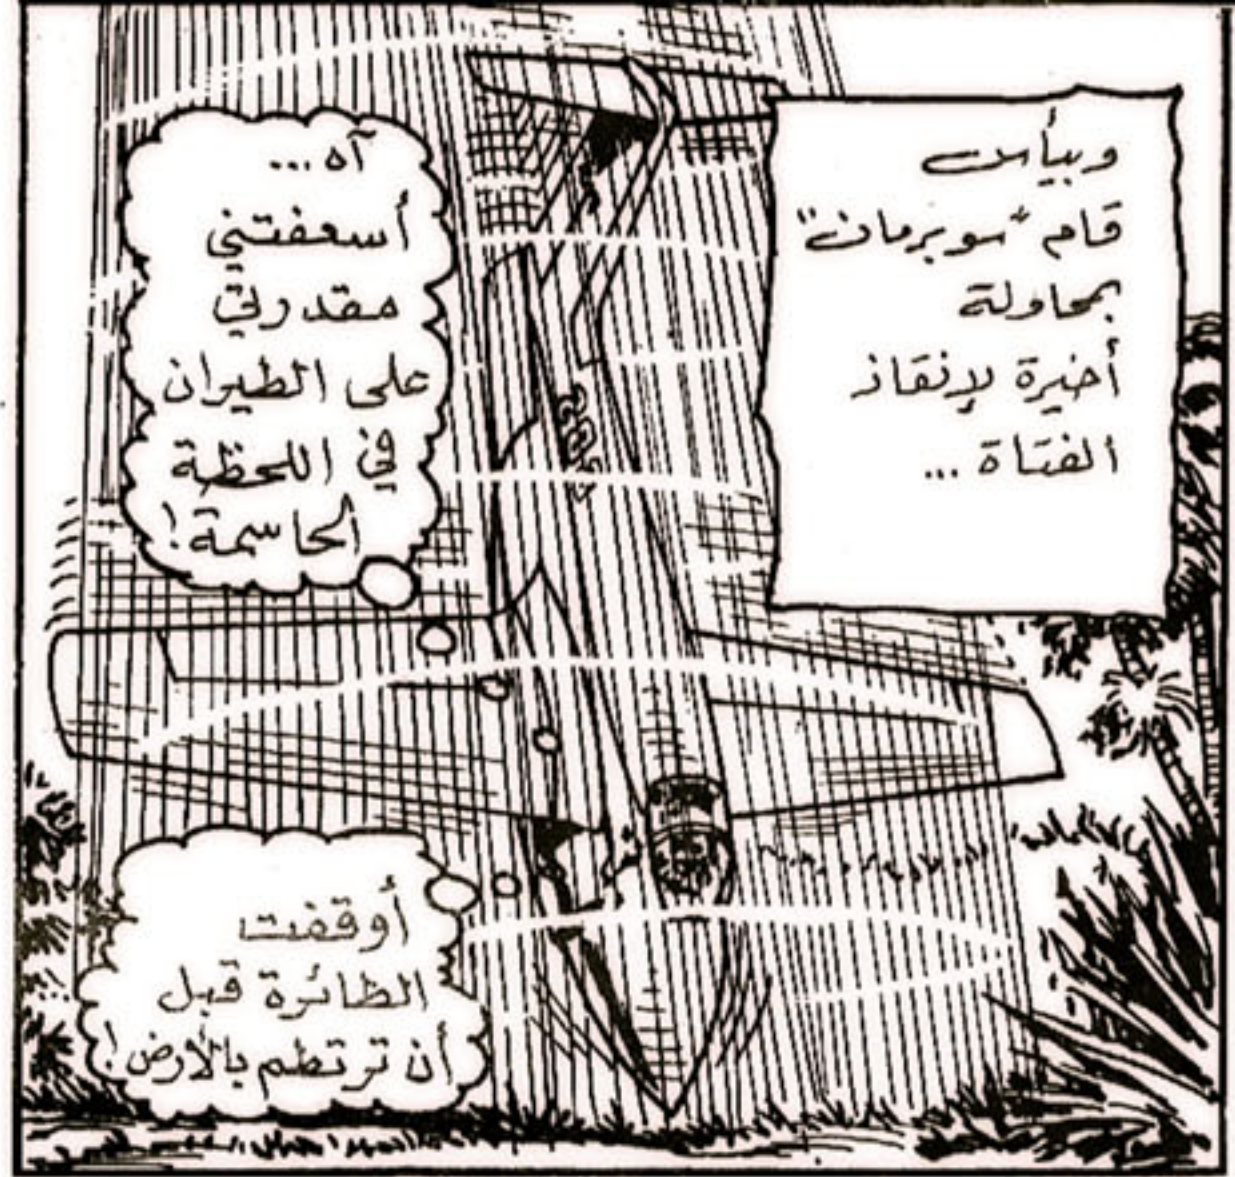 وبيأس
قام "سوبرمان"
بمحاولة
أخيرة لإنقاذ
الفتاة ...
آه ...
أسعفتني
مقدرتي
على الطيران
في اللحظة
الحاسمة!
أوقفت
الطائرة قبل
أن ترتطم بالأرض!